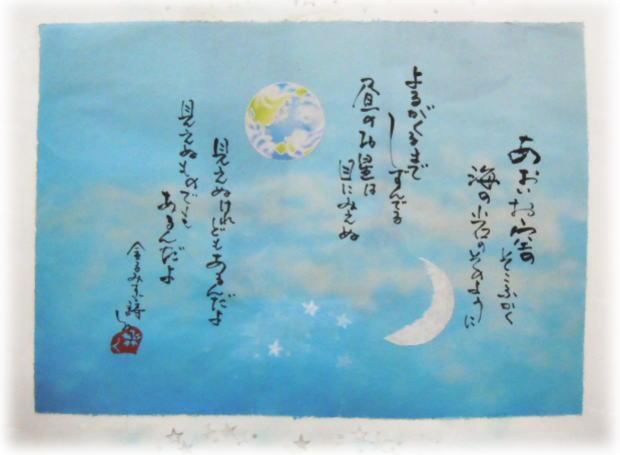 あおいお空の
そこふかく
海の小石のそのように
よるがくるまで
しずんでる
昼のお星は
目にみえぬ
見えぬけれどもあるんだよ
見えぬものでも
あるんだよ
金子みすゞ詩